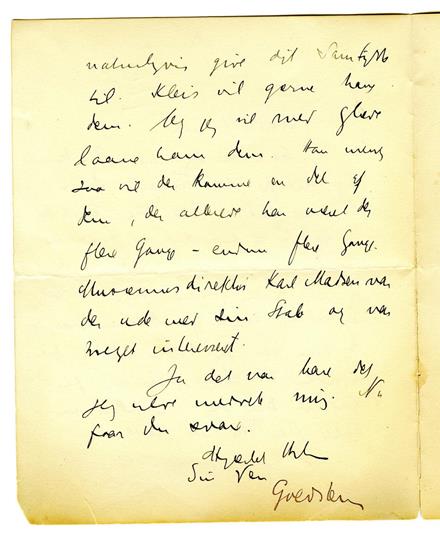 naturligvis give dit Samtykke
til. Kleis vil gerne have
dem. Og jeg vil med Glæde
laane ham dem. Han mener
saa vil der komme en Del af
dem, der allerede har været der
flere Gange – endnu flere Gange.
Museumsdirektør Karl Madsen var
derude med sin Stab og var
meget interesseret.
Ja det var bare det
jeg vilde mig. Nu
faar du svare.
Hjertelig Hilsen
Din Ven